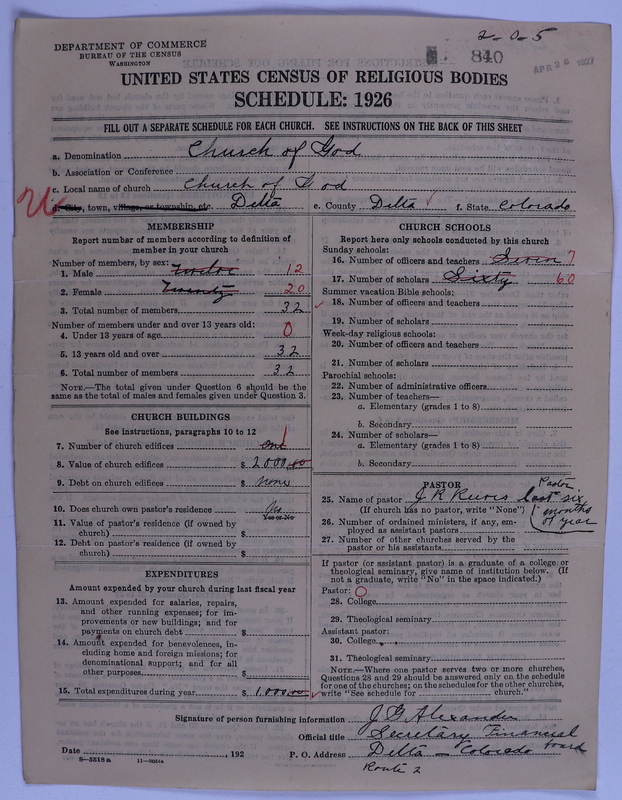 2-0-5
DEPARTMENT OF COMMERCE
BUREAU OF THE CENSUS
WASHINGTON
840
APR 26 1927
UNITED STATES CENSUS OF RELIGIOUS BODIES
SCHEDULE: 1926
FILL OUT A SEPARATE SCHEDULE FOR EACH CHURCH. SEE INSTRUCTIONS ON THE BACK OF THIS SHEET
a. Denomination Church of God
b. Association or Conference
c. Local name of church Church of God
d. City, town, village, or township, etc. Delta e. County Delta f. State Colorado
MEMBERSHIP
Report number of members according to definition of
member in your church
Number of members, by sex:
1. Male Twelve 12
2. Female Twenty 20
3. Total number of members 32
Number of members under and over 13 years old:
4. Under 13 years of age 0
5. 13 years old and over 32
6. Total number of members 32
NOTE.—The total given under Question 6 should be
the same as the total of males and females given under Question 3.
CHURCH BUILDINGS
See instructions, paragraphs 10 to 12
7. Number of church edifices one 1
8. Value of church edifices $ 2000.00
9. Debt on church edifices $ none
10. Does church own pastor's residence No
Yes or No
11. Value of pastor's residence (if owned by
church) $
12. Debt on pastor's residence (if owned by
church) $
EXPENDITURES
Amount expended by your church during last fiscal year
13. Amount expended for salaries, repairs,
and other running expenses; for im-
provements or new buildings; and for
payments on church debt $
14. Amount expended for benevolences, in-
cluding home and foreign missions; for
denominational support; and for all
other purposes $
15. Total expenditures during year $ 1,000.00
CHURCH SCHOOLS
Report here only schools conducted by this church
Sunday schools:
16. Number of officers and teachers Seven 7
17. Number of scholars Sixty 60
Summer vacation Bible schools:
18. Number of officers and teachers
19. Number of scholars
Week-day religious schools:
20. Number of officers and teachers
21. Number of scholars
Parochial schools:
22. Number of administrative officers
23. Number of teachers—
a. Elementary (grades 1 to 8)
b. Secondary
24. Number of scholars—
a. Elementary (grades 1 to 8)
b. Secondary
PASTOR
25. Name of pastor J R Pastor last six
(If church has no pastor, write "None") months
of year
26. Number of ordained ministers, if any, em-
ployed as assistant pastors
27. Number of other churches served by the
pastor or his assistants
If pastor (or assistant pastor) is a graduate of a college or
theological seminary, give name of institution below. (If
not a graduate, write "No" in the space indicated.)
Pastor: O
28. College
29. Theological seminary
Assistant pastor:
30. College
31. Theological seminary
NOTE.—Where one pastor serves two or more churches,
Questions 28 and 29 should be answered only on the schedule
for one of the churches; on the schedules for the other churches,
write "See schedule for church."
Signature of person furnishing information J. G. Alexander
Official title Secretary Financial board
Date , 192 P. O. Address Delta - Colorado
8-5518 a 11-9054a Route 2